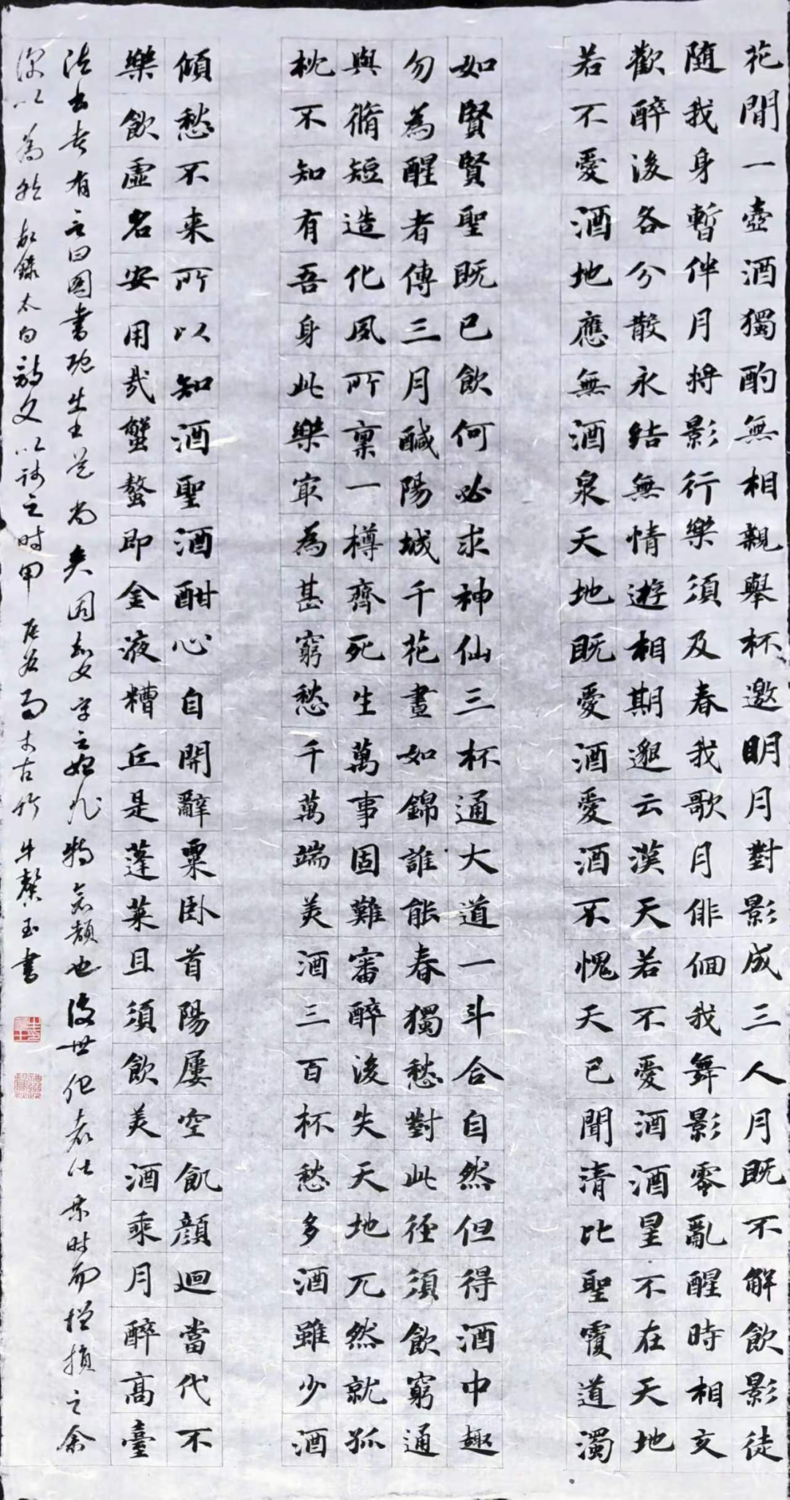 花間一壺酒獨酌無相親舉杯邀明月對影成三人月既不解飲影徒
隨我身暫伴月將影行樂須及春我歌月俳佪我舞影零亂醒時相交
歡醉後各分散永結無情遊相期邈云漢天若不愛酒酒星不在天地
若不愛酒地應無酒泉天地既愛酒愛酒不愧天已聞清比聖覆道濁
如賢賢聖既已飲何必求神仙三杯通大道一斗合自然但得酒中趣
勿為醒者傳三月醎陽城千花晝如錦誰能春獨愁對此徑須飲窮通
與脩短造化夙所稟一樽齊死生萬事固難審醉後失天地兀然就孤
枕不知有吾身此樂冣為甚窮愁千萬端美酒三百杯愁多酒雖少酒
傾愁不来所以知酒聖酒酣心自開辭粟卧首陽屢空飢顔迴當代不
樂飲虛名安用哉蟹螯即金液糟丘是蓬萊且須飲美酒乘月醉高臺
法書者有言曰圖書 生 尚矣因知文字之始 也後世但 時而增損之余
深以為然 錄太白詩文以 之時甲辰 古 牛馨玉書